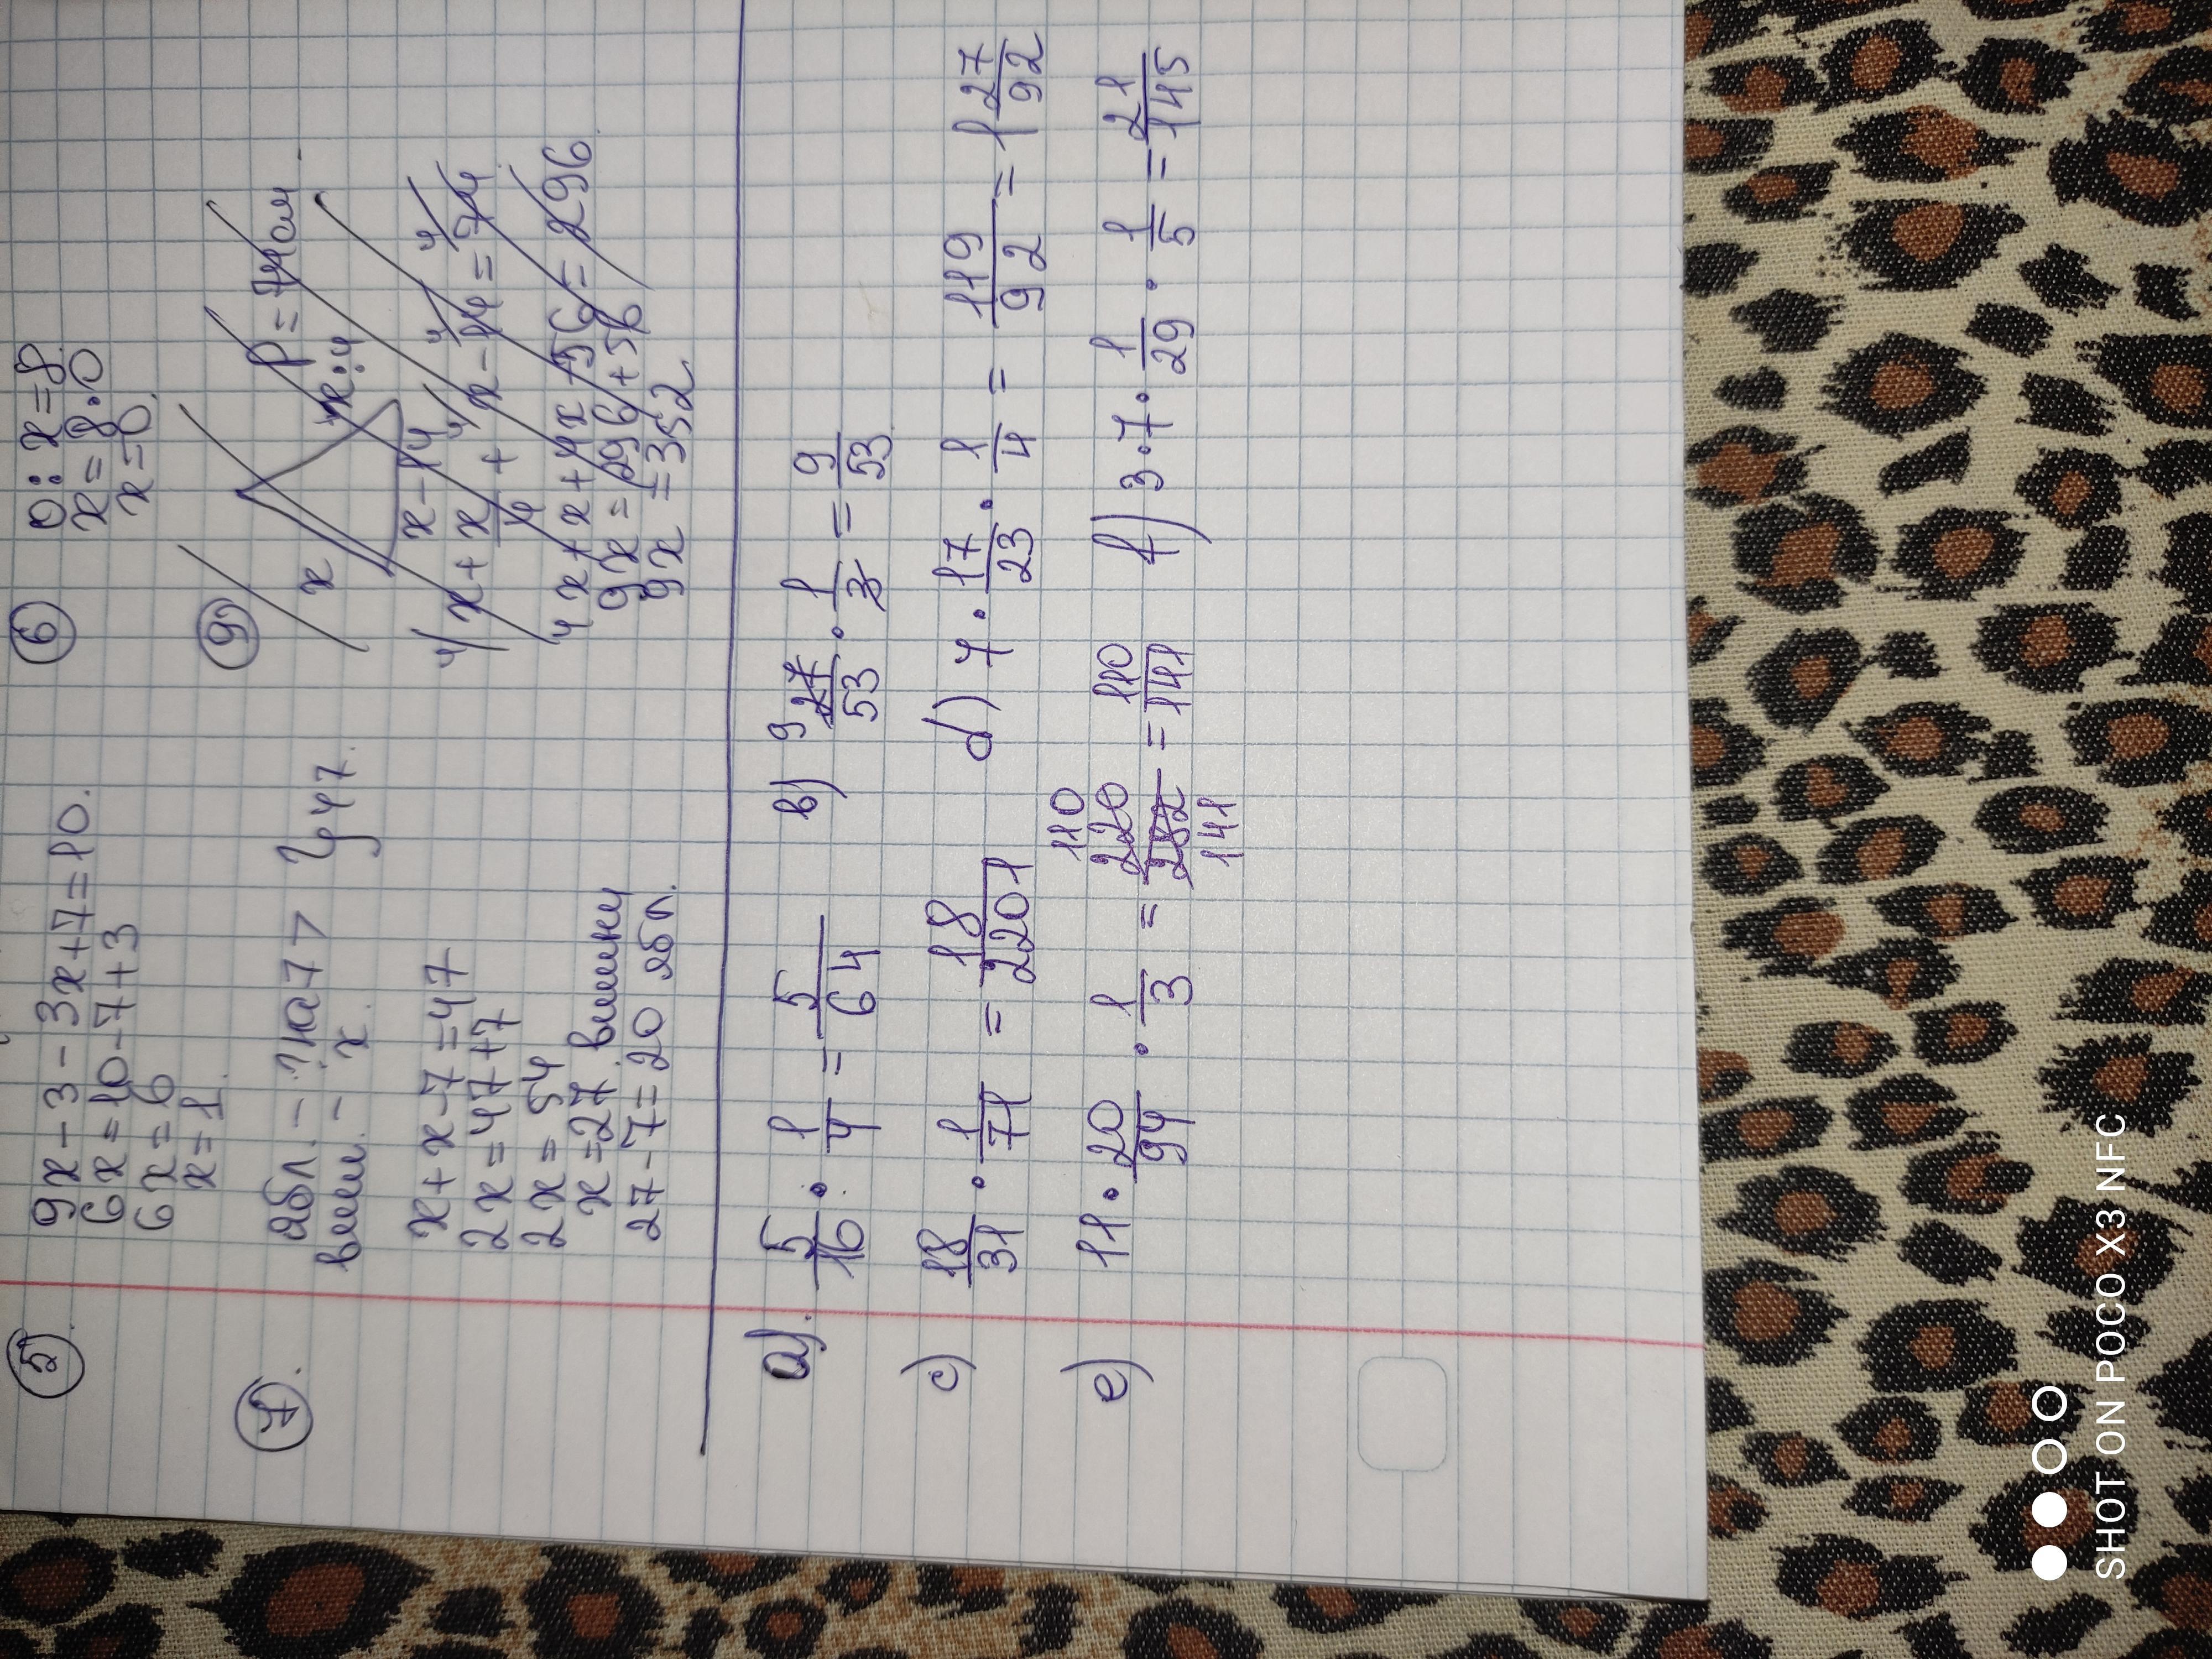 ⑤ 9x-3-3x+7=10.
6x=10-7+3
6x=6
x=1.
⑥ 0:x=8.
x=8·0
x=0.
⑦. ябл. - ? на 7 > } 47.
вишн. - x.
x+x-7=47
2x=47+7
2x=54
x=27. вишни
27-7=20 ябл.
⑨ P=74см.
x x:4
x-14
4/ x+ x/4 4/ + x-14 4/ =74 4/
4x+x+4x+56=296
9x=296+56
9x=352.
a). 5/16 · 1/4 = 5/64
в) 9 27/53 · 1/3 = 9/53
c) 18/31 · 1/71 = 18/2201
d) 7 · 17/23 · 1/4 = 119/92 = 1 27/92
e) 11 · 20/94 · 1/3 = 110 220/282 141 = 110/141
f) 3·7· 1/29 · 1/5 = 21/145
SHOT ON POCO X3 NFC